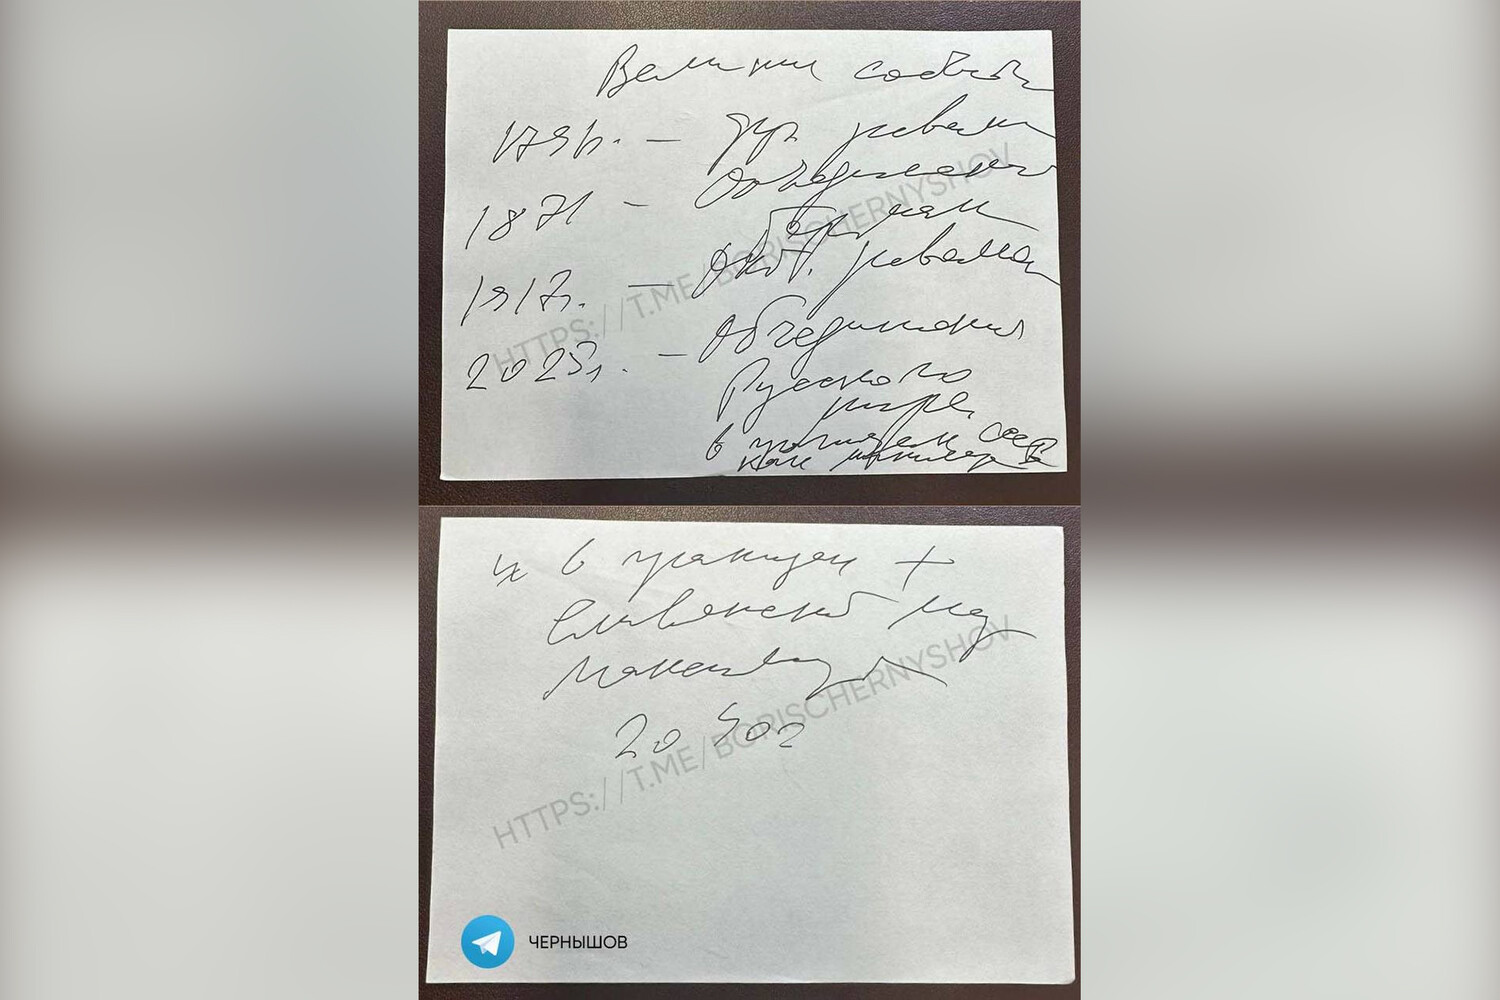 Великие события
1791г. — фр. революция
1871 — Объединение
Германии
1917г. — Окт. революция
2025г. — Объединение
Русского
мира
в границах СССР
как минимум
в границах +
Славянск
20
HTTPS://T.ME/BORISCHERNYSHOV
HTTPS://T.ME/BORISCHERNYSHOV
ЧЕРНЫШОВ